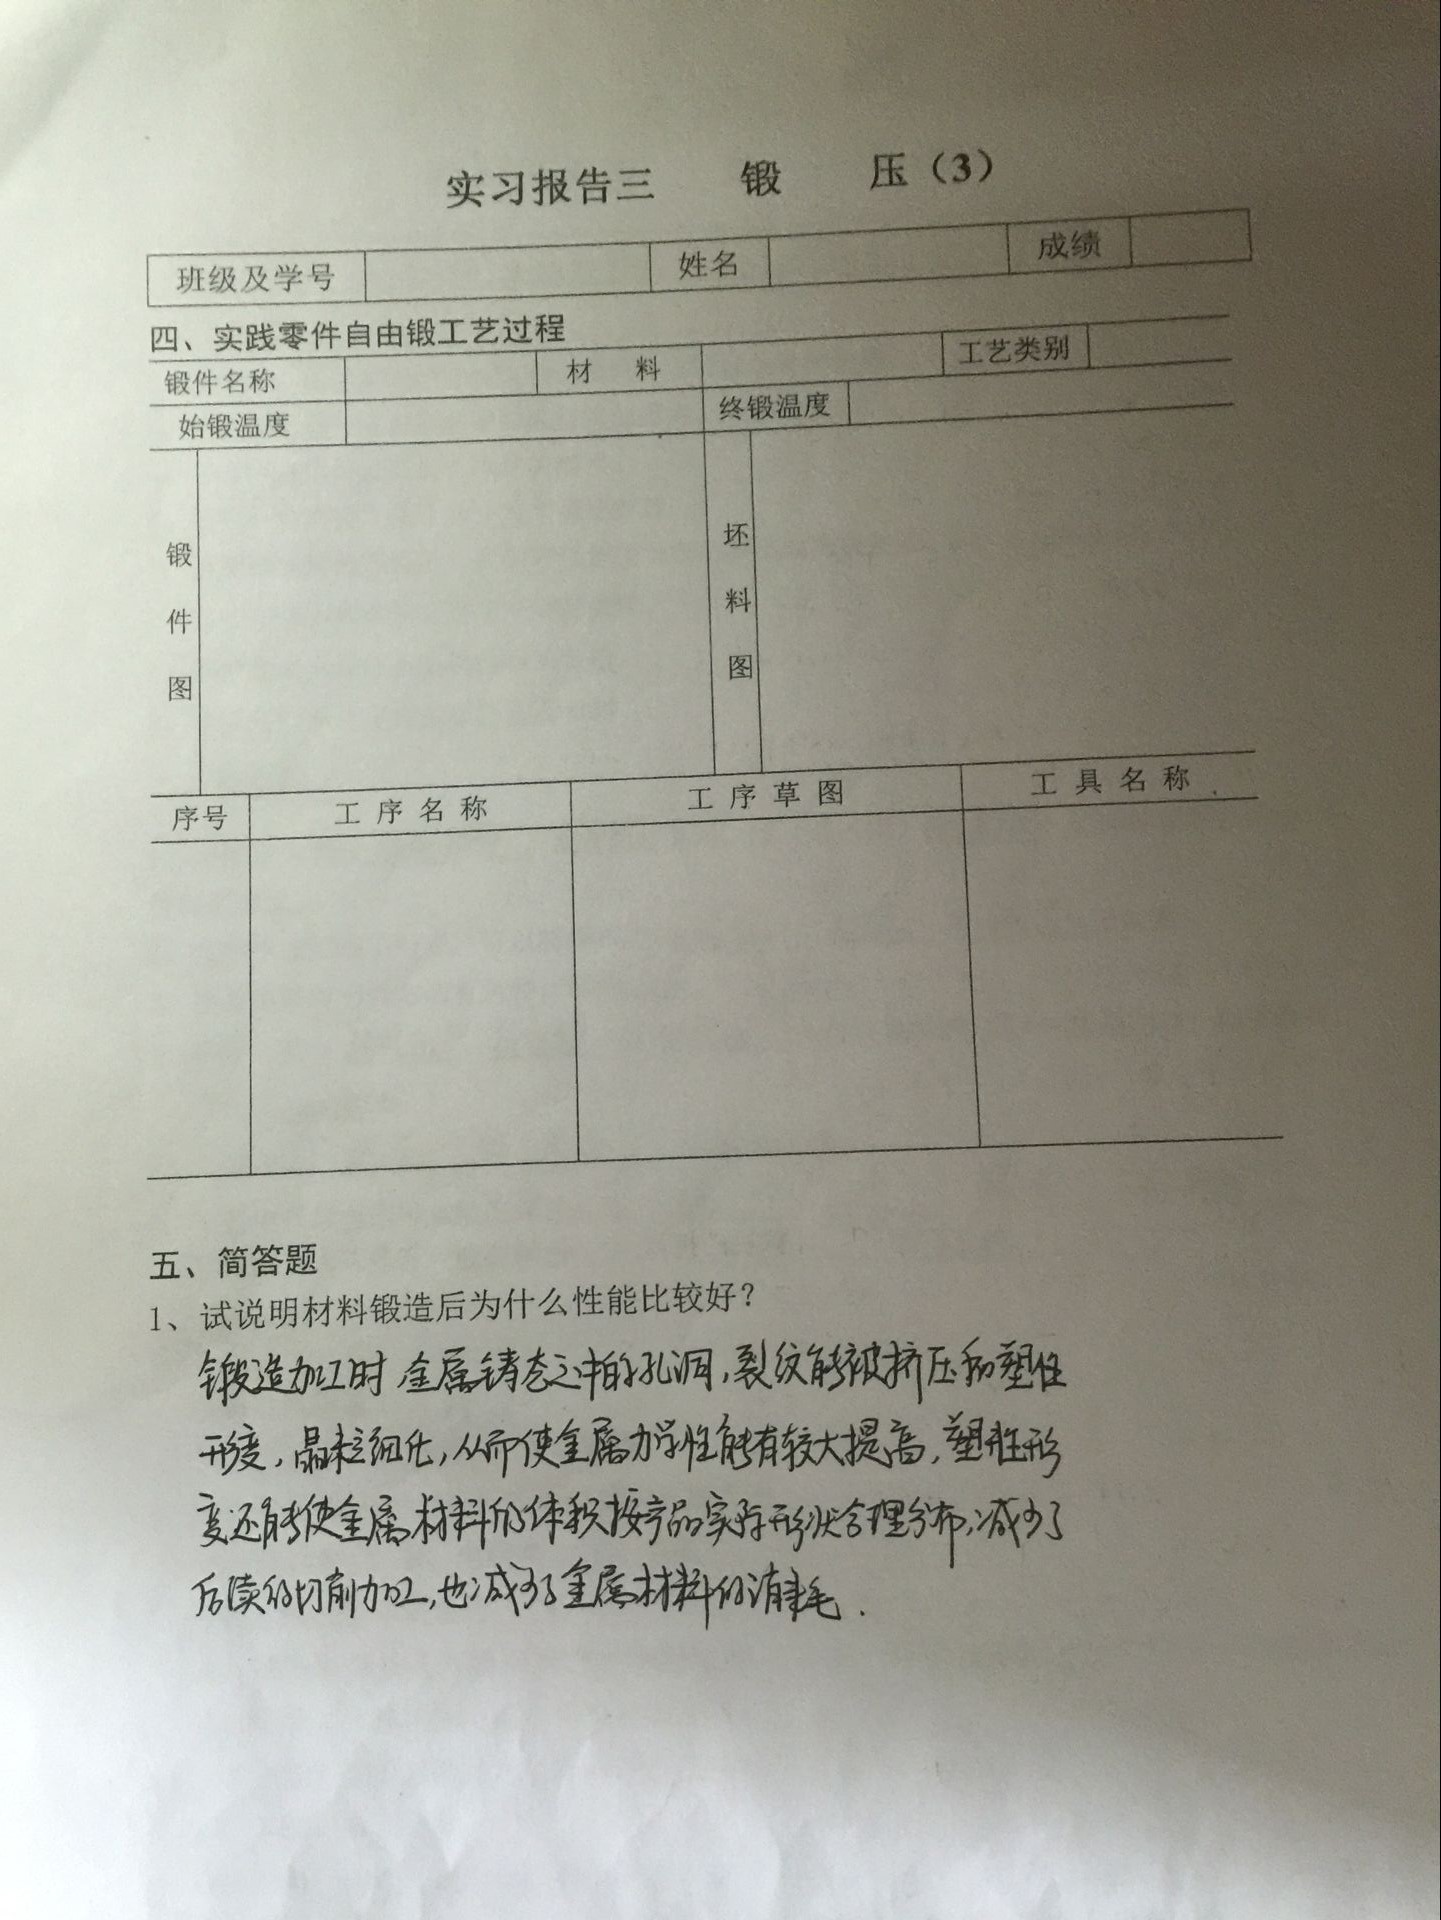 实习报告三 锻 压（3）
班级及学号 姓名 成绩
四、实践零件自由锻工艺过程
锻件名称 材 料 工艺类别
始锻温度 终锻温度
锻件图 坯料图
序号 工序名称 工序草图 工具名称
五、简答题
1、试说明材料锻造后为什么性能比较好？
锻造加工时，金属铸态之中的孔洞，裂纹能被挤压和塑性
形变，晶粒细化，从而使金属力学性能有较大提高，塑性形
变还能使金属材料的体积按产品实际形状合理分布，减少了
后续的切削加工，也减少了金属材料的消耗．